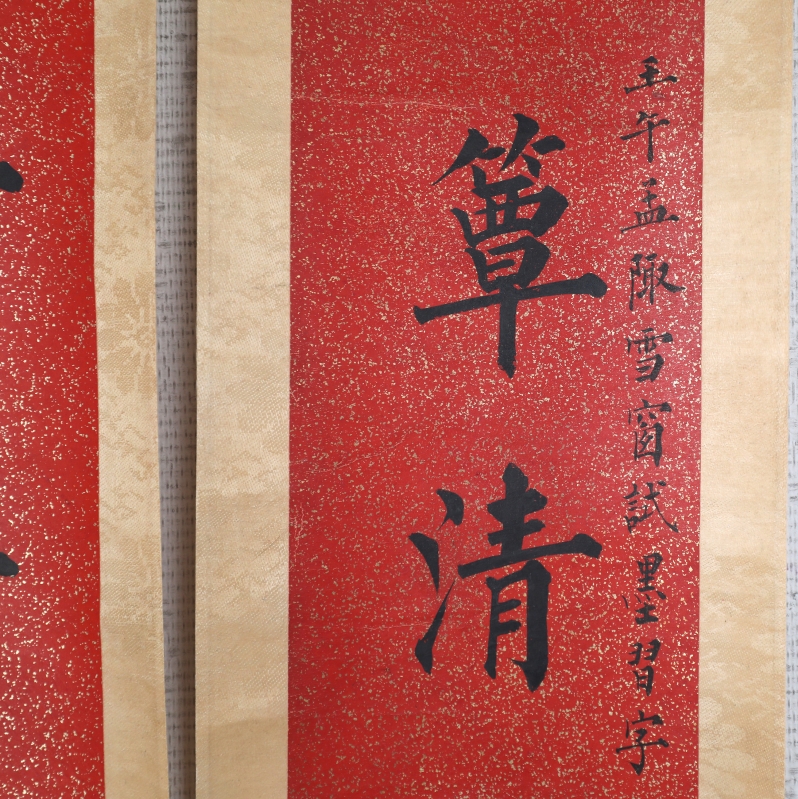 壬午孟陬雪窗試墨習字
簟清